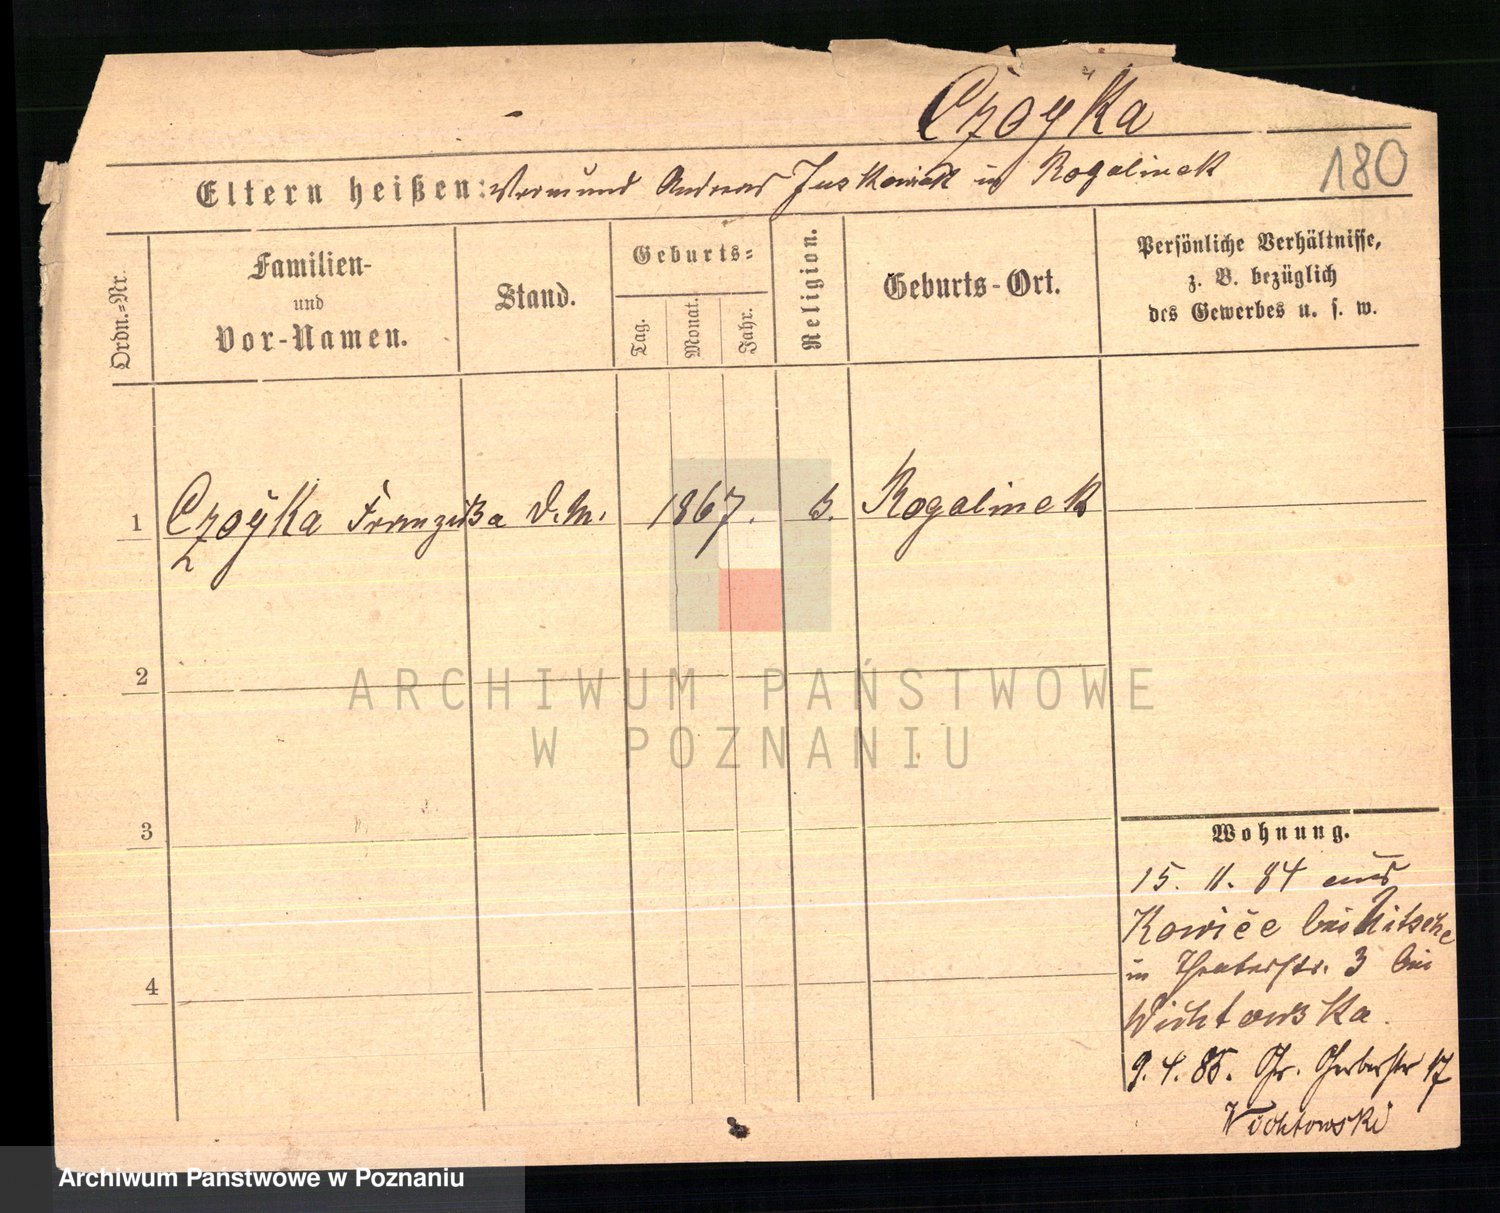 Czoÿka
180
Eltern heißen: Vormund Andreas Juskowiak in Rogalinek
Ordn.-Nr.
Familien-
und
Vor-Namen.
Stand.
Geburts-
Tag.
Monat.
Jahr.
Religion.
Geburts-Ort.
Persönliche Verhältnisse,
z. B. bezüglich
des Gewerbes u. s. w.
1 Czoÿka Franziska D.M. 1867. Rogalinek
2
3
4
ARCHIWUM PAŃSTWOWE
W POZNANIU
Wohnung.
15. 11. 84 aus
bei Nitsche
in Theaterstr. 3 bei
Wichtowska.
9. 4. 85. Gr. Gerberstr 17
Wichtowski
Archiwum Państwowe w Poznaniu